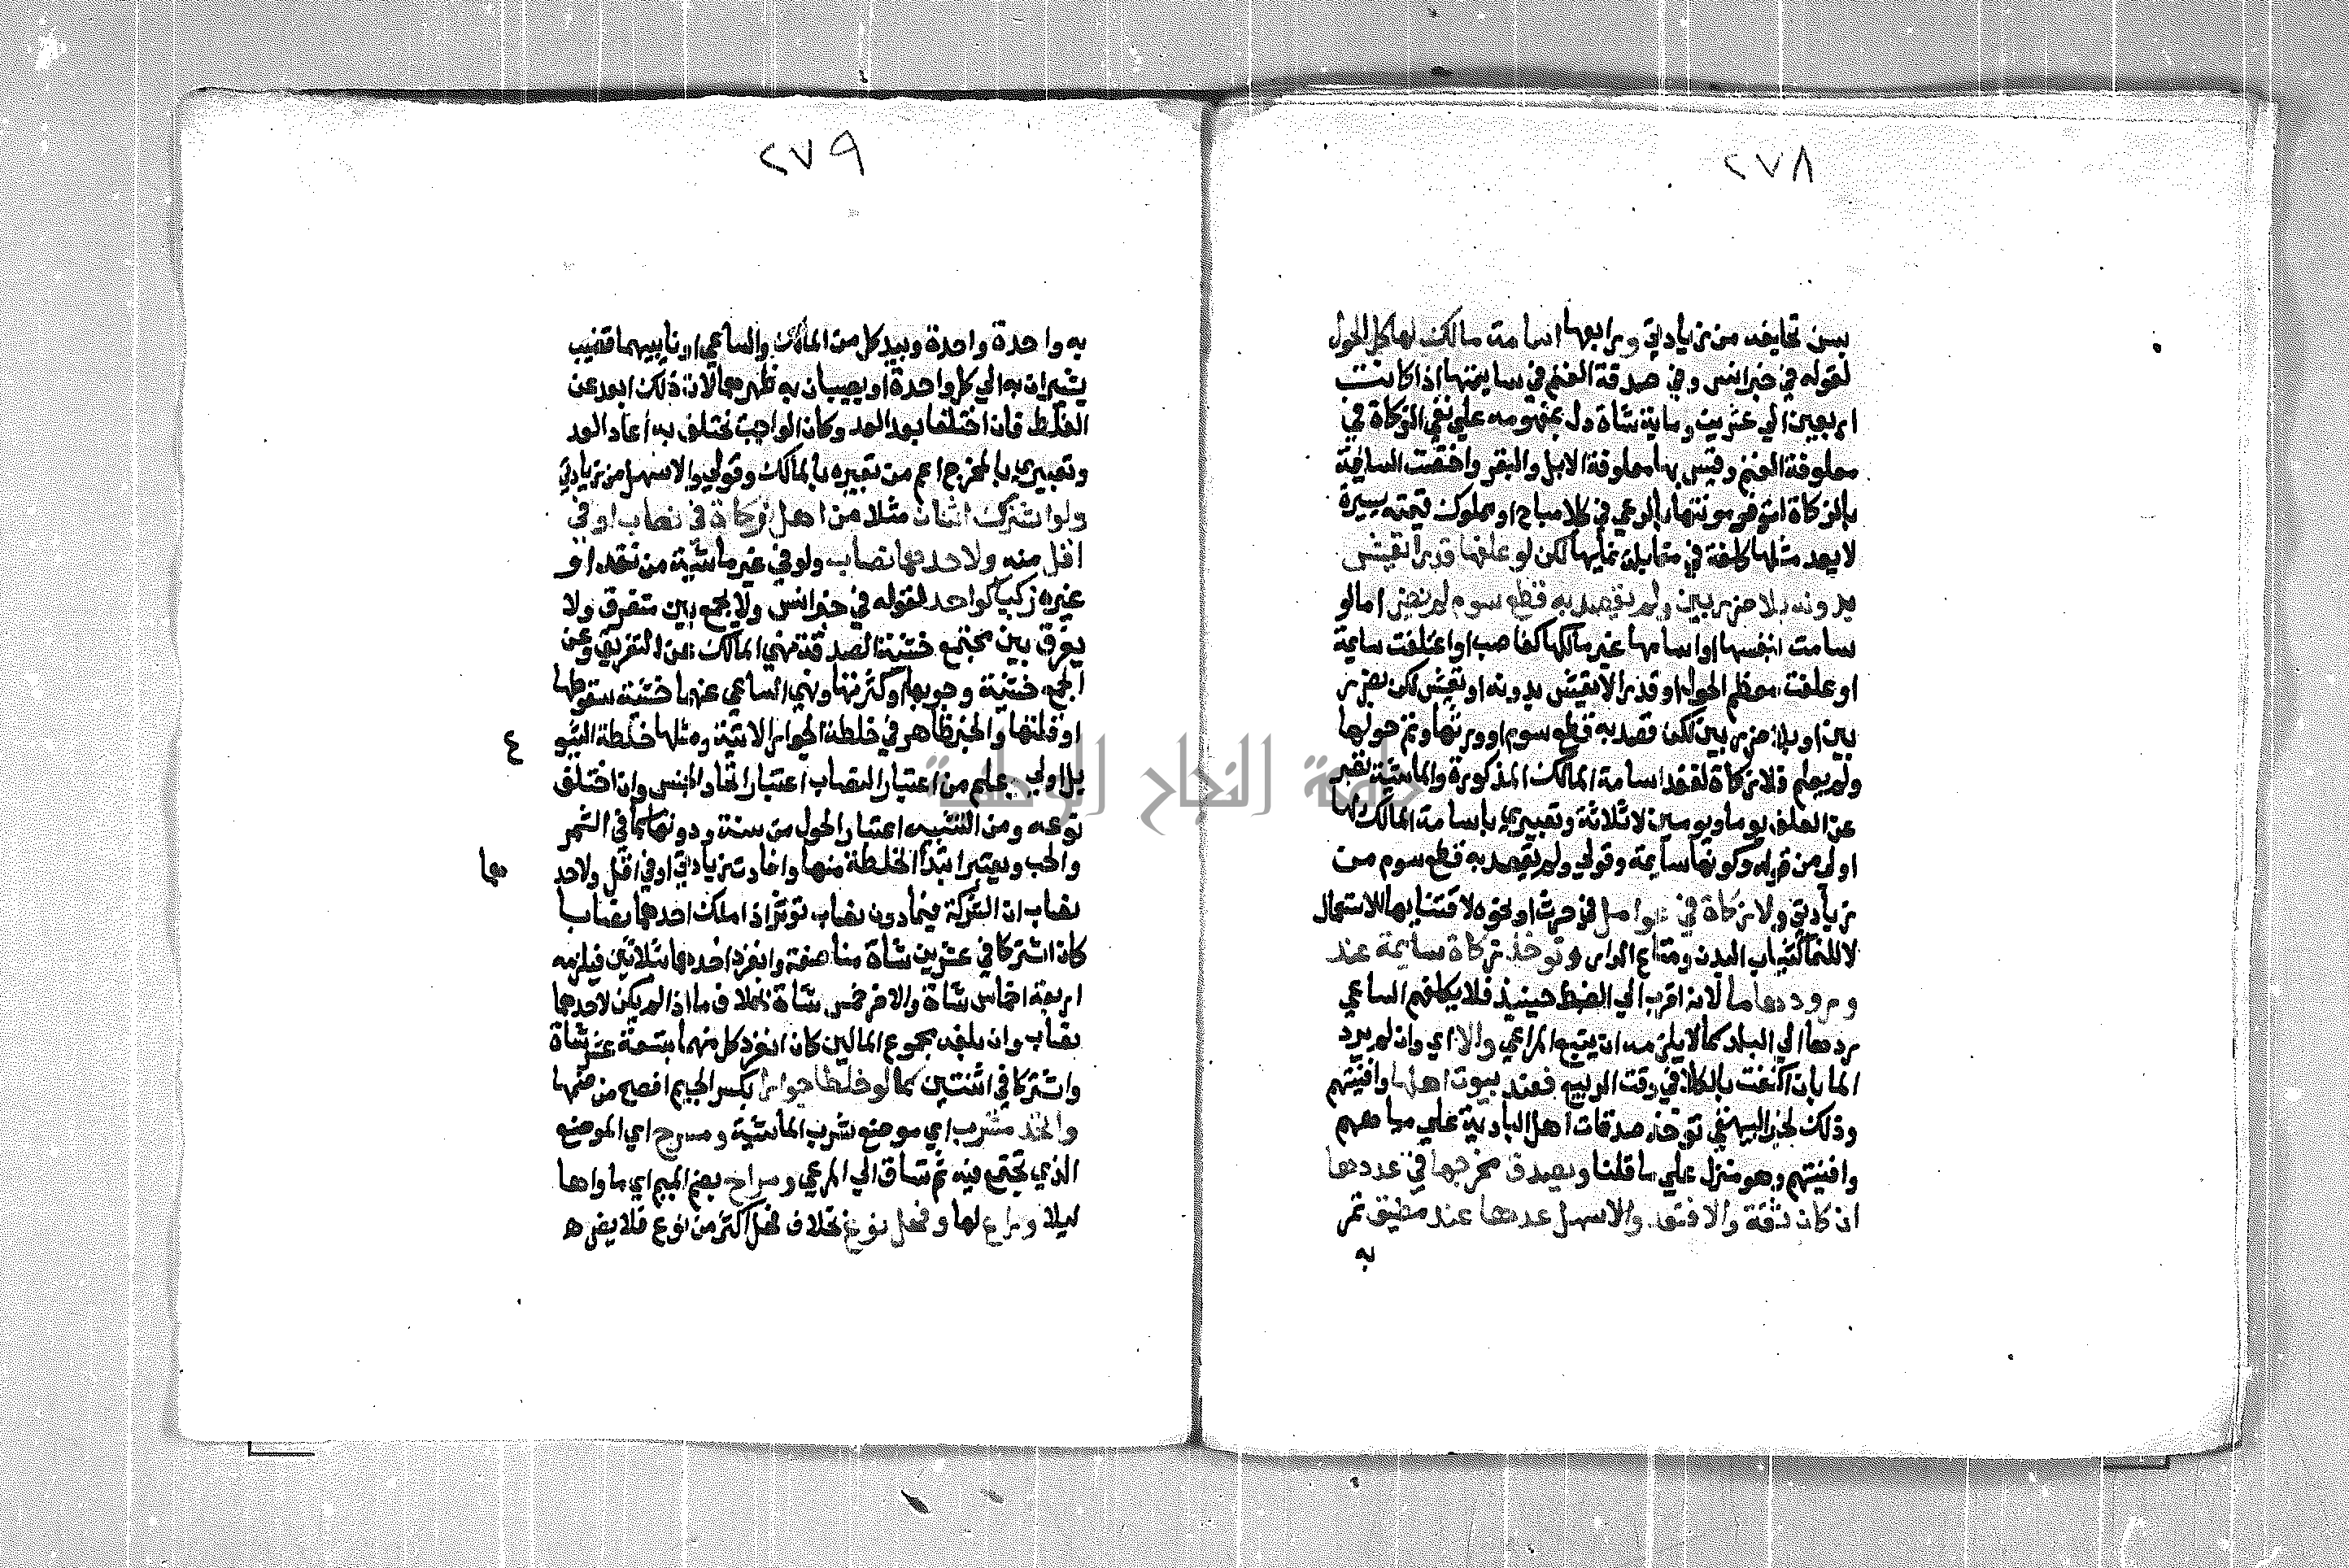 ٢٧٨
بسن تخايفه من زيادتي ورابعها اسامة مالك لها كل الحول
لقوله في خبر انس وفي صدقة الغنم في سايمتها اذا كانت
اربعين الي عشرين وماية شاة دل بمفهومه علي نفي الزكاة في
معلوفة الغنم وقيس بها معلوفة الابل والبقر واختصت السايمة
بالزكاة لتوفر مونتها بالرعي في كلا مباح او مملوك قيمته يسيرة
لا يعد مثلها كلفة في مقابلة نمايها لكن لو علفها قدرا تعيش
بدونه بلا ضرر بين ولم يقصد به قطع سوم لم يضر اما لو
سامت بنفسها او اسامها غير مالكها كغاصب او اعتلفت سايمة
او علفت معظم الحول او قدرا لا تعيش بدونه او تعيش لكن بضرر
بين او بلا ضرر بين لكن قصد به قطع سوم او ورثها وتم حولها
ولم يعلم فلا زكاة لفقد اسامة المالك المذكورة والماشية تصبر
عن العلف يوما ويومين لا ثلاثة وتعبيري باسامة المالك لها
اولي من قوله وكونها سايمة وقولي ولم يقصد به قطع سوم من
زيادتي ولا زكاة في عوامل في حرث او نحوه لاقتنايها للاستعمال
لا للنما كثياب البدن ومتاع الدار وتوخذ زكاة سايمة عند
ورودها ما لانه اقرب الي الضبط حينيذ فلا يكلفهم الساعي
ردها الي البلد كما لا يلزمه ان يتبع المراعي والا اي وان لم يرد
الما بان اكتفت بالكلا في وقت الربيع فعند بيوت اهلها وافنيتهم
وذلك لخبر البيهقي توخذ صدقات اهل البادية علي مياههم
وافنيتهم وهو منزل علي ما قلنا ويصدق مخرجها في عددها
ان كان ثقة والا فتعد والاسهل عدها عند مضيق تمر
به
٢٧٩
به واحدة واحدة وبيد كل من المالك والساعي او نايبهما قضيب
يشيران به الي كل واحدة او يصيبان به ظهرها لان ذلك ابعد عن
الغلط فان اختلفا بعد العد وكان الواجب يختلف به اعاد العد
وتعبيري بالمخرج اعم من تعبيره بالمالك وقولي والاسهل من زيادتي
ولو اشترك اثنان مثلا من اهل زكاة في نصاب او في
اقل منه ولاحدهما نصاب ولو في غير ماشية من نقد او
غيره زكيا كواحد لقوله في خبر انس ولا يجمع بين متفرق ولا
يفرق بين مجتمع خشية الصدقة نهي المالك عن التفريق وعن
الجمع خشية وجوبها او كثرتها ونهي الساعي عنهما خشية سقوطها
او قلتها والخبر ظاهر في خلطة الجوار الاتية ومثلها خلطة الشيو
ع
بل اولي وعلم من اعتبار النصاب اعتبار اتحاد الجنس وان اختلف
نوعه ومن التشبيه اعتبار الحول من سنة ودونها كما في الثمر
والحب ويعتبر ابتدا الخلطة منها وافادت زيادتي او في اقل ولاحد
هما
نصاب ان الشركة فيما دون نصاب توثر اذا ملك احدهما نصابا
كان اشتركا في عشرين شاة مناصفة وانفرد احدهما بثلاثين فيلزمه
اربعة اخماس شاة والاخر خمس شاة بخلاف ما اذا لم يكن لاحدهما
نصاب وان بلغه مجموع المالين كان انفرد كل منهما بتسعة عشر شاة
واشتركا في اثنتين كما لو خلطا جوارا بكسر الجيم افصح من ضمها
واتحد مشرب اي موضع شرب الماشية ومسرح اي الموضع
الذي تجتمع فيه ثم تساق الي المرعي ومراح بضم الميم اي ماواها
ليلا وراع لها وفحل نوع بخلاف فحل اكثر من نوع فلا يضر